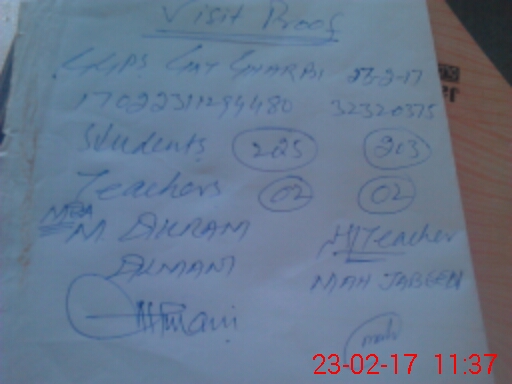 Visit Proof
GGPS CMT GHARBI 23-2-17
32320375
Students 225 213
Teachers 02 02
MEA
M. AKRAM H/Teacher
MAH JABEEN
23-02-17 11:37